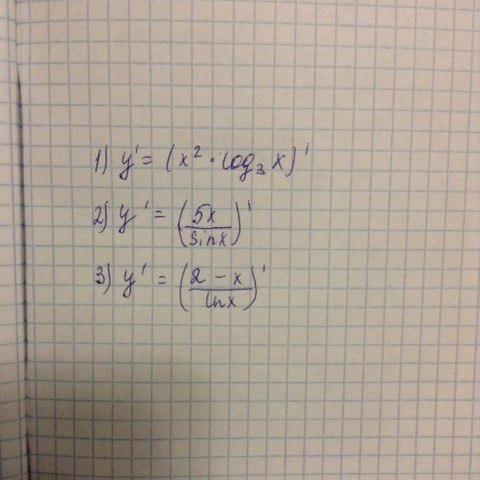 1) y' = (x² · log₃ x)'
2) y' = (5x / sin x)'
3) y' = (2 - x / ln x)'